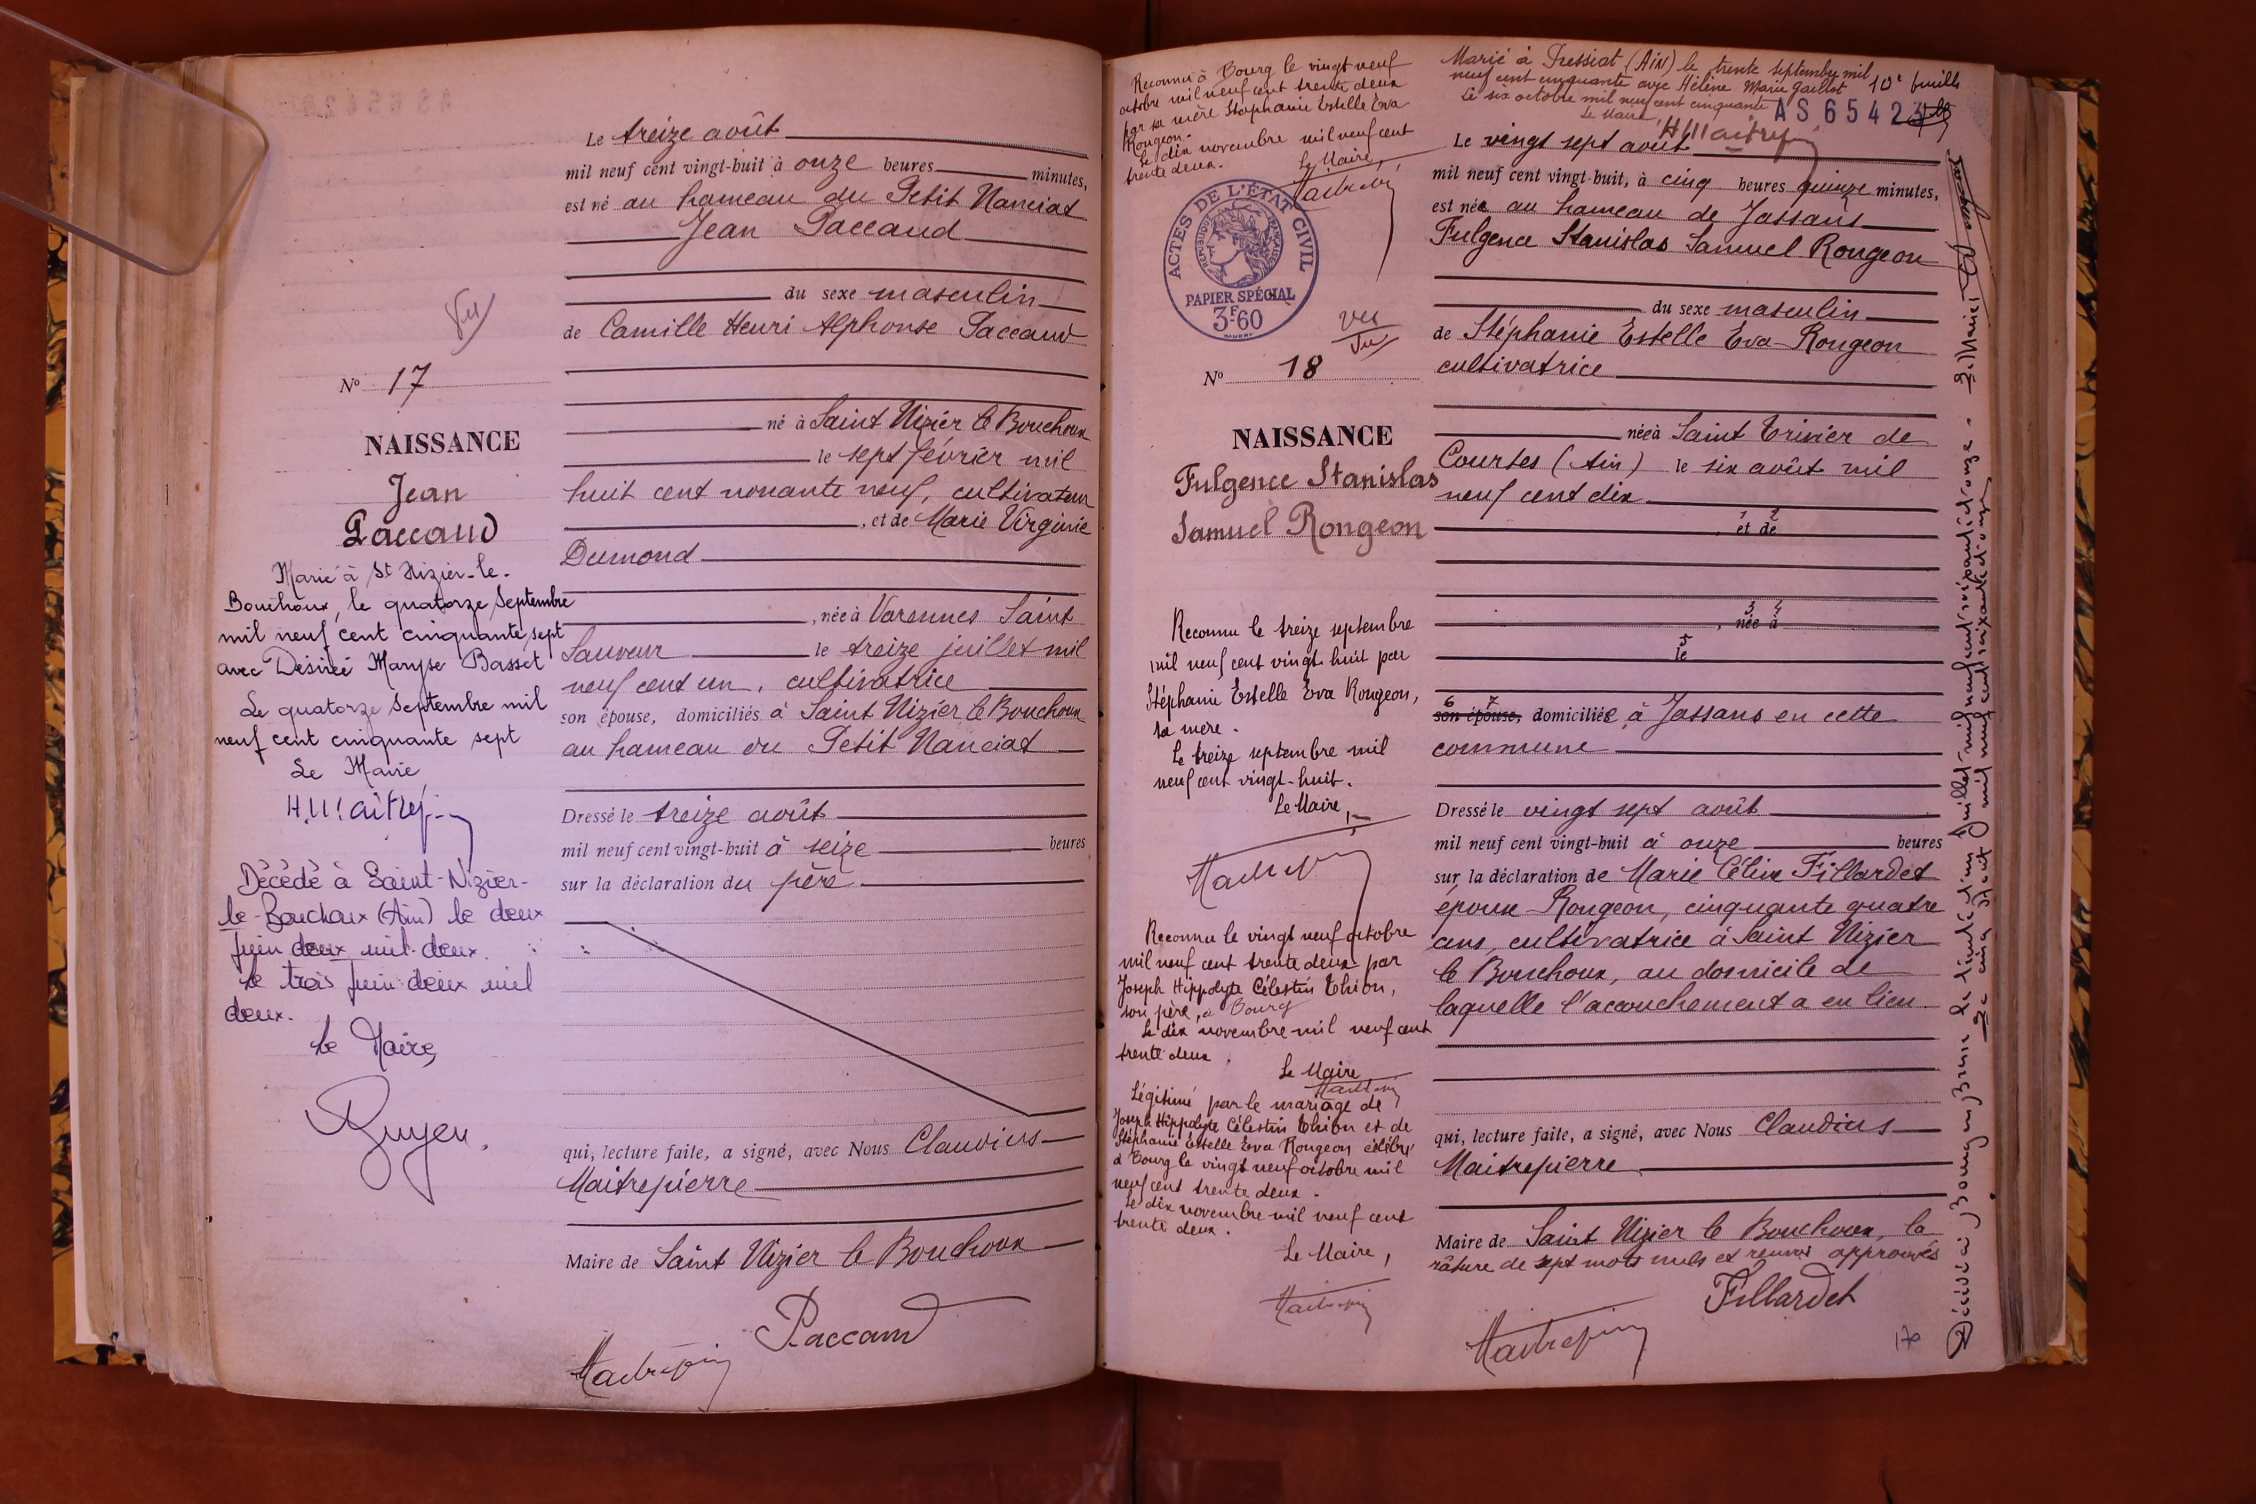 Le treize août
mil neuf cent vingt-huit à onze heures minutes,
est né au hameau du Petit Nanciat
Jean Paccaud
du sexe masculin
de Camille Henri Alphonse Paccaud
né à Saint Nizier le Bouchoux
le sept février mil
huit cent nonante neuf, cultivateur
, et de Marie Virginie
Dumond
, née à Varennes Saint
Sauveur le treize juillet mil
neuf cent un, cultivatrice
son épouse, domiciliés à Saint Nizier le Bouchoux
au hameau du Petit Nanciat
Dressé le treize août
mil neuf cent vingt-huit à seize heures
sur la déclaration du père
qui, lecture faite, a signé, avec Nous Claudius
Maitrepierre
Maire de Saint Nizier le Bouchoux
Paccaud
Vu
No 17
NAISSANCE
Jean
Paccaud
Marié à St Nizier-le-
Bouchoux, le quatorze Septembre
mil neuf cent cinquante sept
avec Désirée Maryse Basset
Le quatorze Septembre mil
neuf cent cinquante sept
Le Maire
Décédé à Saint-Nizier-
le-Bouchoux (Ain) le deux
juin deux mil deux.
le trois juin deux mil
deux.
le Maire,
Reconnu à Bourg le vingt neuf
octobre mil neuf cent trente deux
par sa mère Stéphanie Estelle Eva
Rongeon.
Le dix novembre mil neuf cent
trente deux. Le Maire,
ACTES DE L'ÉTAT CIVIL
RÉPUBLIQUE FRANÇAISE
PAPIER SPÉCIAL
3F60
Vu
Vu
No 18
NAISSANCE
Fulgence Stanislas
Samuel Rongeon
Reconnu le treize septembre
mil neuf cent vingt-huit par
Stéphanie Estelle Eva Rongeon,
sa mère.
Le treize septembre mil
neuf cent vingt-huit.
Le Maire,
Reconnu le vingt neuf octobre
mil neuf cent trente deux par
Joseph Hippolyte Célestin Thion,
son père, à Bourg
Le dix novembre mil neuf cent
trente deux.
Le Maire
Légitimé par le mariage de
Joseph Hippolyte Célestin Thion et de
Stéphanie Estelle Eva Rongeon célébré
à Bourg le vingt neuf octobre mil
neuf cent trente deux.
Le dix novembre mil neuf cent
trente deux.
Le Maire,
Marié à Pressiat (Ain) le trente septembre mil
neuf cent cinquante avec Hélène Marie Gaillot
Le six octobre mil neuf cent cinquante
Le Maire,
10e feuille
AS 65423
Le vingt sept août
mil neuf cent vingt-huit, à cinq heures quinze minutes,
est née au hameau de Jassans
Fulgence Stanislas Samuel Rongeon
du sexe masculin
de Stéphanie Estelle Eva Rongeon
cultivatrice
née à Saint Trivier de
Courtes (Ain) le six août mil
neuf cent dix
1 2
, et de
3 4
, née à
5
le
6 7
son épouse, domiciliée à Jassans en cette
commune
Dressé le vingt sept août
mil neuf cent vingt-huit à onze heures
sur la déclaration de Marie Céline Fillardet
épouse Rongeon, cinquante quatre
ans, cultivatrice à Saint Nizier
le Bouchoux, au domicile de
laquelle l'accouchement a eu lieu
qui, lecture faite, a signé, avec Nous Claudius
Maitrepierre
Maire de Saint Nizier le Bouchoux, la
râture de sept mots nuls et renvoi approuvés
Fillardet
170
Décédé à Bourg en Bresse le trente et un juillet mil neuf cent soixante et onze. Le Maire
Le cinq août mil neuf cent soixante et onze